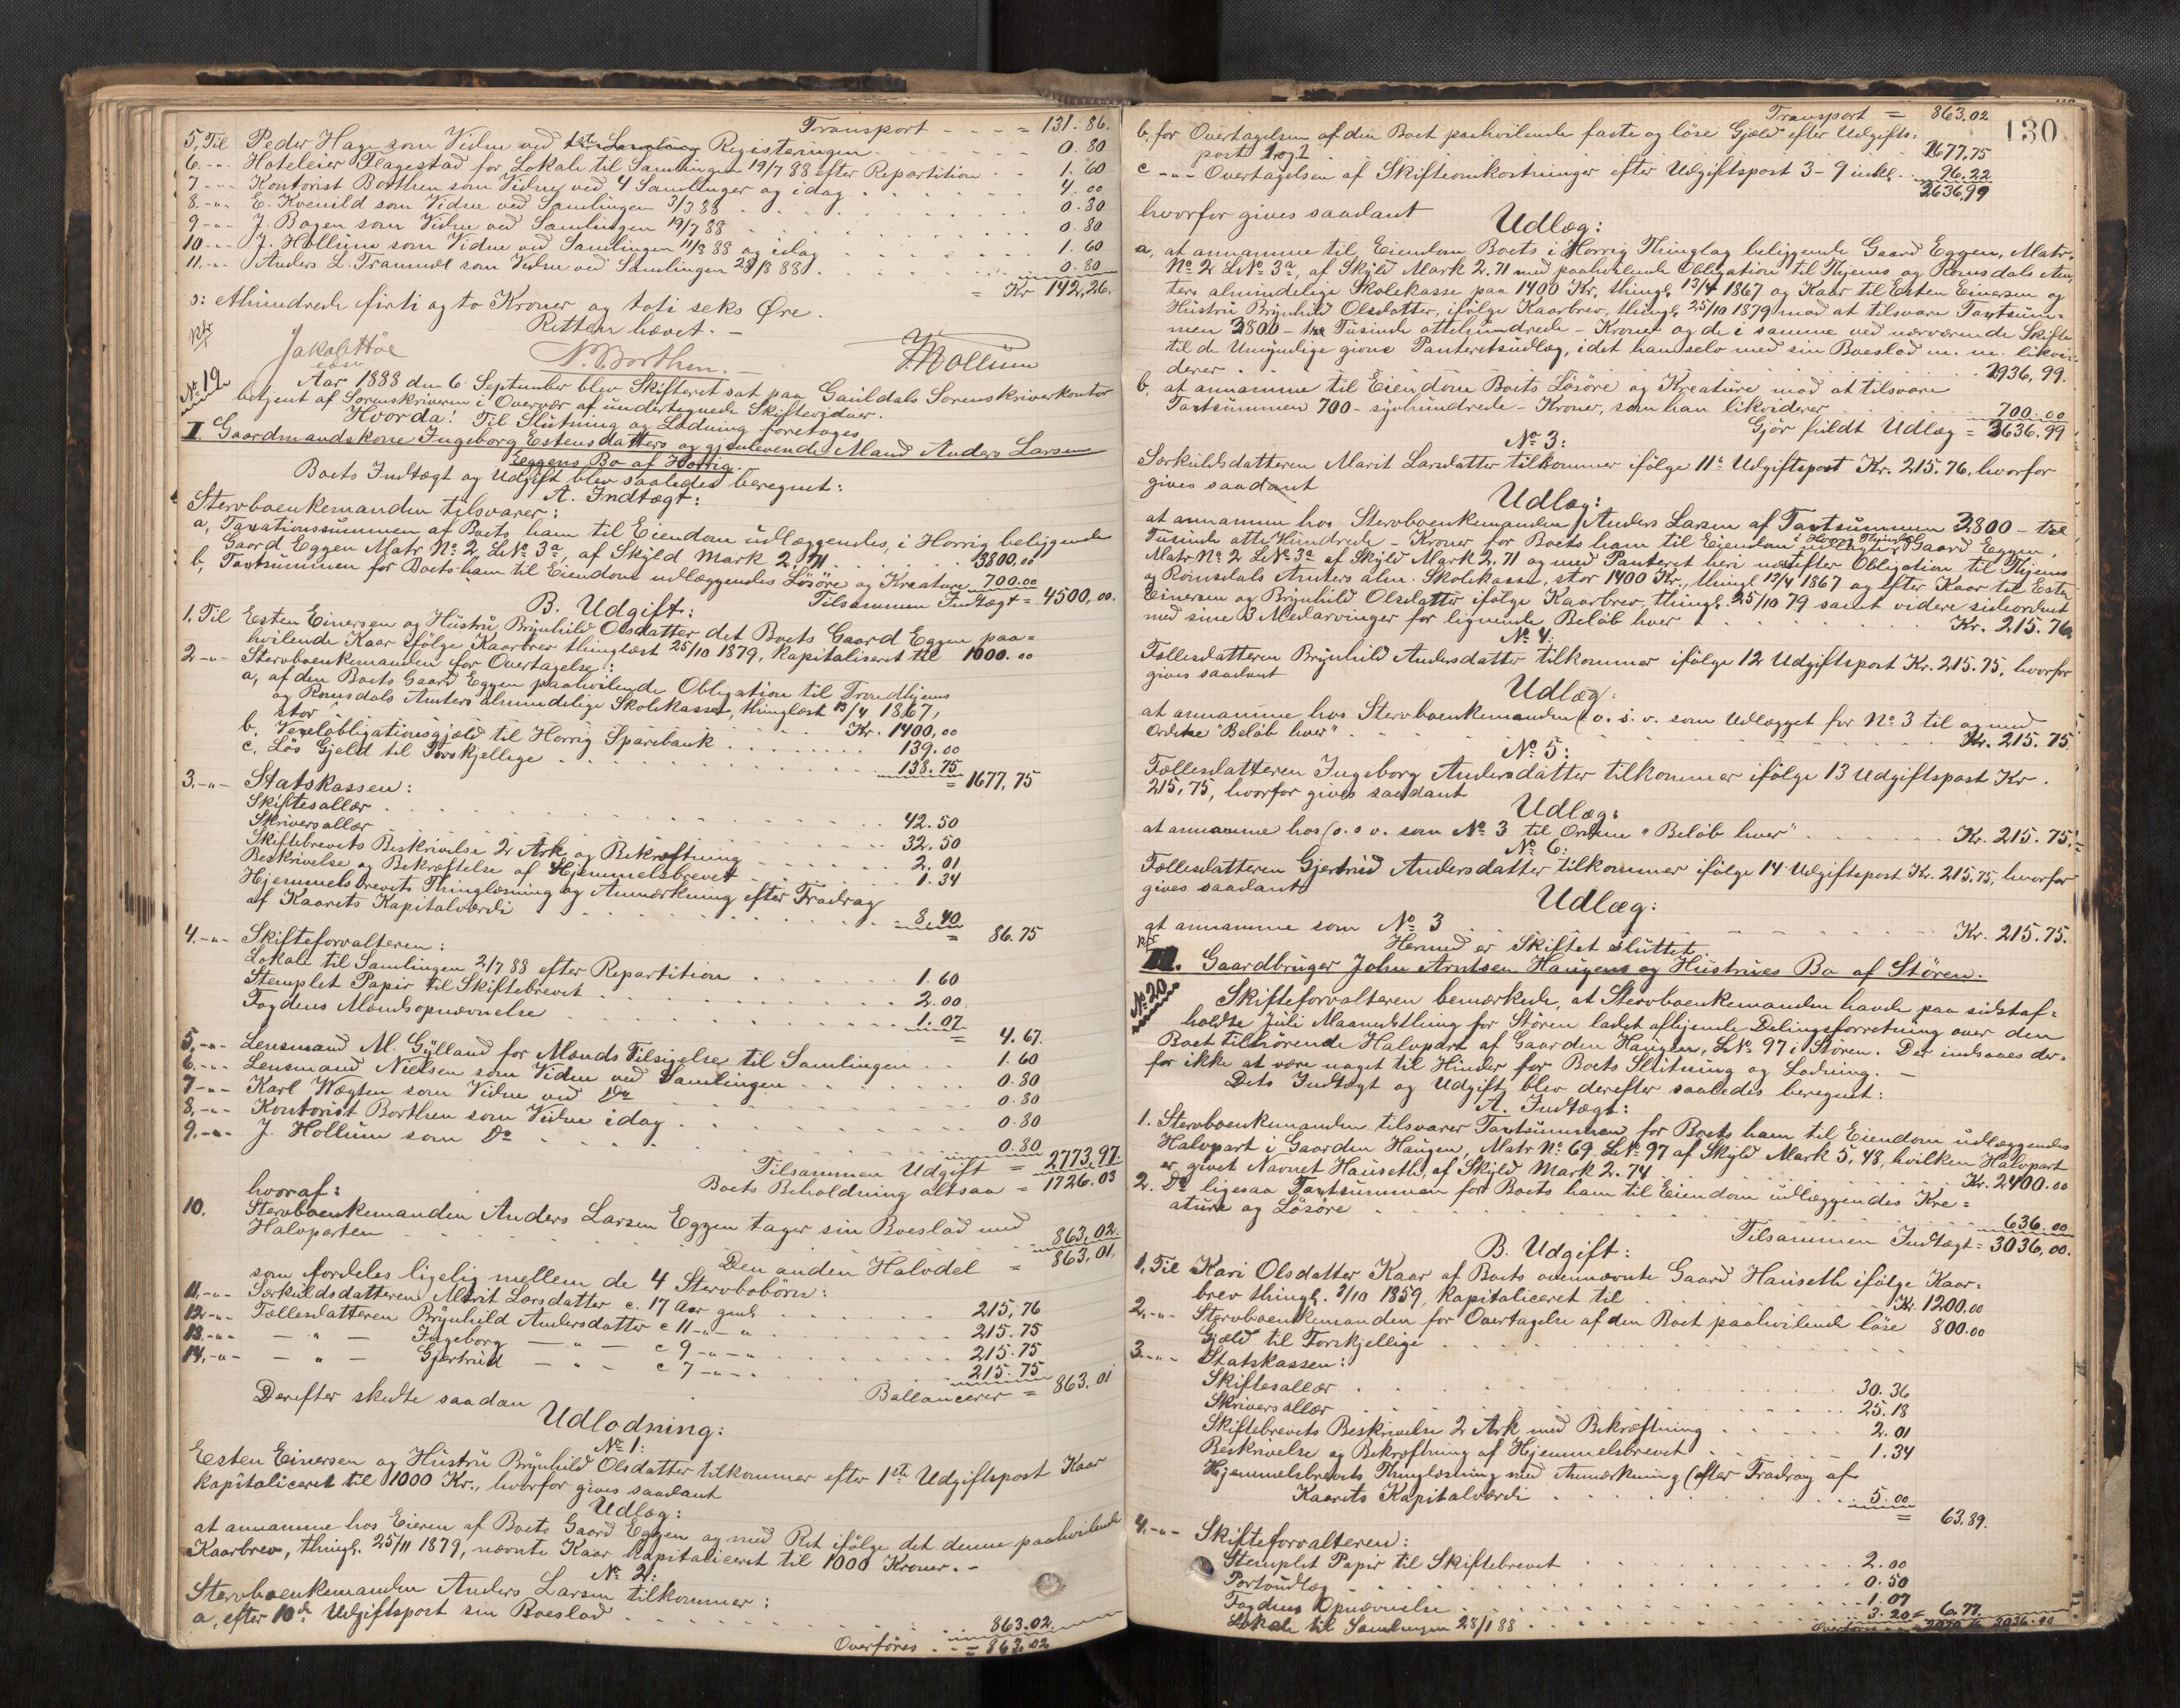 Transport - - - = 131.86.
5, Til Peder Hage som Vidne ved Registeringen 0.80
6 -"- Hoteleier Flagestad for Lokale til Samlingen 19/7 88 efter Repartition 1.60
7 -"- Kontorist Borthen som Vidne ved 4 Samlinger og idag 4.00
8.-"- E. Kvenild som Vidne ved Samlingen 3/3 88 0.80
9 -"- J. Bogen som Vidne ved Samlingen 19/7 88 0.80
10 -"- J. Hollum som Vidne ved Samlingen 11/8 88 og idag 1.60
11.-"- Anders L. Tranmæl som Vidne ved Samlingen 28/8 88 0.80
= Kr 142,26.
ɔ: ethundrede firti og to Kroner og toti seks Øre.
Retten hævet. -
N. Borthen. J. Hollum
No 19 Aar 1888 den 6. September blev Skifteret sat paa Gauldals Sorenskriverkontor
betjent af Sorenskriveren i Overvær af undertegnede Skiftevidner.
Hvorda! Til Slutning og Lodning foretoges
I. Gaardmandskone Ingeborg Estensdatters og gjenlevende Mand Anders Larsen
Eggens Bo af Horrig.
Boets Indtægt og Udgift blev saaledes beregnet:
A. Indtægt:
Stervboenkemanden tilsvarer:
a, Taxationssummen af Boets ham til Eiendom udlæggendes, i Horrig beliggende
Gaard Eggen Matr No 2, LNo 3a, af Skyld Mark 2.71 3800,00
b, Taxtsummen for Boets ham til Eiendom udlæggendes Lösöre og Kreature 700.00
Tilsammen Indtægt = 4500,00.
B. Udgift:
1. Til Esten Einersen og Hustru Brynhild Olsdatter det Boets Gaard Eggen paa=
hvilende Kaar ifölge Kaarbrev thinglæst 25/10 1879, kapitaliseret til 1000.00
2 -"- Stervboenkemanden for Overtagelse:
a, af den Boets Gaard Eggen paahvilende Obligation til Trondhjems
og Romsdals Amters almindelige Skolekasse, thinglæst 13/4 1867,
stor Kr. 1400,00
b. Vexelobligationsgjæld til Horrig Sparebank 139.00
c. Lös Gjeld til Forskjellige 138.75
= 1677,75
3,-"- Statskassen:
Skiftesallær 42.50
Skriversallær 32.50
Skiftebrevets Beskrivelse 2 Ark og Bekræftning 2.01
Beskrivelse og Bekræftelse af Hjemmelsbrevet 1.34
Hjemmelsbrevets Thinglæsning og Anmærkning efter Fradrag
af Kaarets Kapitalværdi 8.40
= 86.75
4.-"- Skifteforvalteren:
Lokale til Samlingen 21/7 88 efter Repartition 1.60
Stemplet Papir til Skiftebrevet 2.00
Fogdens Mandsopnævnelse 1.07
= 4.67
5,-"- Lensmand M. Gylland for Mands Tilsigelse til Samlingen 1.60
6.-"- Lensmand Nielsen som Vidne ved Samlingen 0.80
7-"- Karl Wægten som Vidne ved Do 0.80
8,-"- Kontorist Borthen som Vidne idag 0.80
9.-"- J. Hollum som Do 0.80
Tilsammen Udgift = 2773,97.
Boets Beholdning altsaa = 1726.03
hvoraf:
10. Stervboenkemanden Anders Larsen Eggen tager sin Boeslod med
Halvparten 863,02.
Den anden Halvdel = 863,01.
som fordeles ligelig mellem de 4 Stervbobörn:
11,-"- Særkuldsdatteren Marit Larsdatter c. 17 Aar gml. 215,76
12-"- Fællesdatteren Brynhild Andersdatter c 11 -"- " 215.75
13,-"- - " - Ingeborg - " - c 9 -"-" 215.75
14,-"- - " - Gjertrud - " - c 7 -"- 215.75
Ballancerer = 863.01
Derefter skedte saadan
Udlodning:
No 1:
Esten Einersen og Hustru Brynhild Olsdatter tilkommer efter 1ste Udgiftspost Kaar
kapitaliceret til 1000 Kr., hvorfor gives saadant
Udlæg:
at annamme hos Eieren af Boets Gaard Eggen og med Ret ifölge det denne paahvilende
Kaarbrev, thingl. 25/11 1879, nævnte Kaar kapitaliceret til 1000 Kroner.-
No 2:
Stervboenkemanden Anders Larsen tilkommer:
a, efter 10de Udgiftspost sin Boeslod 863.02
Overföres = 863.02
130
Transport = 863.02
b, for Overtagelsen af den Boet paahvilende faste og löse Gjæld efter Udgifts:
post 1 og 2 1677,75
c -"- Overtagelsen af Skifteomkostninger efter Udgiftspost 3 - 9 inkl. 96.22
2636,99
hvorfor gives saadant
Udlæg:
a, at annamme til Eiendom Boets i Horrig Thinglag beliggende Gaard Eggen, Matr.
No 2 LNo 3a, af Skyld Mark 2.71 med paahvilende Obligation til Thjems og Romsdals Am
ters almindelige Skolekasse paa 1400 Kr, thingl. 13/4 1867 og Kaar til Esten Einersen og
Hustru Brynhild Olsdatter, ifölge Kaarbrev, thingl. 25/10 1879 mod at tilsvare Taxtsum=
men 3800 - tre Tusinde ottehundrede - Kroner og de i samme ved nærværende Skifte
til de Umyndige givne Panteretsudlæg, idet han selv med sin Boeslod m. m. likvi=
derer 2936,99.
b. at annamme til Eiendom Boets Lösöre og Kreature mod at tilsvare
Taxtsummen 700 - syvhundrede - Kroner, som han likviderer 700.00
Gjör fuldt Udlæg = 3636.99
No 3:
Særkuldsdatteren Marit Larsdatter tilkommer ifölge 11te Udgiftspost Kr. 215.76, hvorfor
gives saadant
Udlæg:
at annamme hos Stervboenkemanden Anders Larsen af Taxtsummen 3800 - tre
Tusinde otte Hundrede - Kroner for Boets ham til Eiendom i Horrig Thinglag udlagte Gaard Eggen,
Matr No 2 LNo 3a af Skyld Mark 2.71 og med Panteret heri næstefter Obligation til Thjems
og Romsdals Amters alm. Skolekasse, stor 1400 Kr., thingl 13/4 1867 og efter Kaar til Esten
Einersen og Brynhild Olsdatter ifölge Kaarbrev, thingl. 25/10 79 samt videre sideordnet
med sine 3 Medarvinger for lignende Belöb hver Kr. 215.76
No 4:
Fællesdatteren Brynhild Andersdatter tilkommer ifölge 12 Udgiftspost Kr. 215.75, hvorfor
gives saadant
Udlæg:
at annamme hos Stervboenkemanden (o. s. v. som Udlægget for No 3 til og med
Ordene "Belöb hver" Kr. 215.75
No 5:
Fællesdatteren Ingeborg Andersdatter tilkommer ifölge 13 Udgiftspost Kr.
215,75, hvorfor gives saadant
Udlæg:
at annamme hos (o. s v. som No 3 til Ordene "Belöb hver" Kr. 215.75.
No 6:
Fællesdatteren Gjertrud Andersdatter tilkommer ifölge 14 Udgiftspost Kr. 215.75, hvorfor
gives saadant
Udlæg:
at annamme som No 3 Kr. 215.75.
Hermed er Skiftet sluttet.
II. Gaardbruger John Arntsen Haugens og Hustrues Bo af Stören.
No 20 Skifteforvalteren bemærkede, at Stervboenkemanden havde paa sidstaf=
holdte Juli Maanedsthing for Stören ladet afhjemle Delingsforretning over den
Boet tilhörende Halvpart af Gaarden Haugen, LNo 97 i Stören. Der indsaaes der=
for ikke at være noget til Hinder for Boets Slutning og Lodning. -
Dets Indtægt og Udgift blev derefter saaledes beregnet:
A. Indtægt:
1. Stervboenkemanden tilsvarer Taxtsummen for Boets ham til Eiendom udlæggendes
Halvpart i Gaarden Haugen, Matr No 69, LNo 97 af Skyld Mark 5,48, hvilken Halvpart
er givet Navnet Hauseth, af Skyld Mark 2.74 Kr. 2400.00
2. Do ligesaa Taxtsummen for Boets ham til Eiendom udlæggendes Kre=
ature og Lösöre 636.00
Tilsammen Indtægt = 3036,00.
B. Udgift:
1, Til Kari Olsdatter Kaar af Boets ovennævnte Gaard Hauseth ifölge Kaar=
brev thingl. 3/10 1859, kapitaliceret til Kr. 1200.00
2,-"- Stervboenkemanden for Overtagelse af den Boet paahvilende löse 800.00
Gjæld til Forskjellige
3.-"- Statskassen:
Skiftesallær 30.36
Skriversallær 25.18
Skiftebrevets Beskrivelse 2 Ark med Bekræftning 2.01
Beskrivelse og Bekræftning af Hjemmelsbrevet 1.34
Hjemmelsbrevets Thinglæsning med Anmærkning (efter Fradrag af
Kaarets Kapitalværdi 5.00
= 63.89.
4.-"- Skifteforvalteren:
Stemplet Papir til Skiftebrevet 2.00
Portoudlæg 0.50
Fogdens Opnævnelse 1.07
Lokale til Samlingen 28/1 88 3.20 = 6.77
Overföres 3036.00